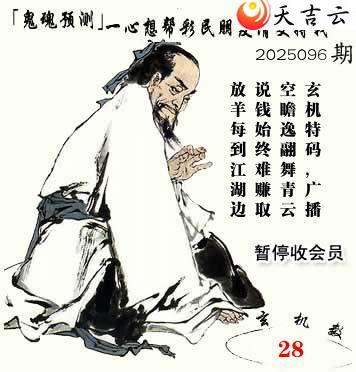 天吉云
「鬼魂预测」一心想帮彩民朋
2025096期
玄机特码，广播
空瞻逸翩舞青云
说钱始终难赚取
放羊每到江湖边
暂停收会员
玄机
28